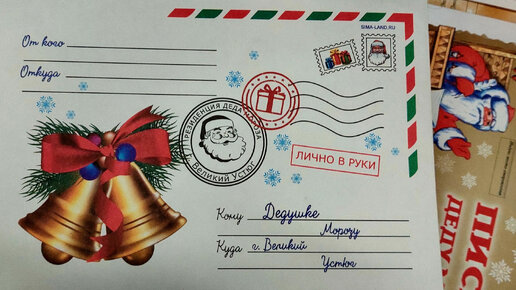 SIMA-LAND.RU
От кого
Откуда
РЕЗИДЕНЦИЯ ДЕДА МОРОЗА
Великий Устюг
ЛИЧНО В РУКИ
Кому Дедушке
Морозу
Куда г. Великий
Устюг
ПИС
ДЕДУ